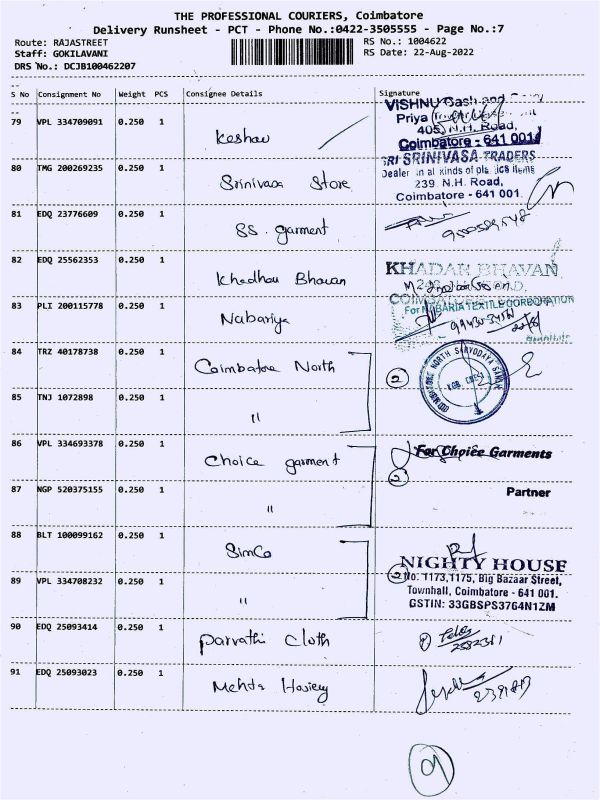 THE PROFESSIONAL COURIERS, Coimbatore
Delivery Runsheet - PCT - Phone No.:0422-3505555 - Page No.:7
Route: RAJASTREET
RS No.: 1004622
Staff: GOKILAVANI
RS Date: 22-Aug-2022
DRS No.: DCJB100462207
S No Consignment No Weight PCS Consignee Details Signature
79 VPL 334709091 0.250 1 Keshav
VISHNU Cash and
Priya
405, N.H. Road,
Coimbatore - 641 001
80 TMG 200269235 0.250 1 Srinivasa Store
SRI SRINIVASA TRADERS
Dealer in all kinds of plastics items
239, N.H. Road,
Coimbatore - 641 001.
81 EDQ 23776609 0.250 1 SS. garment
82 EDQ 25562353 0.250 1 Khadhau Bhavan
KHADAR BHAVAN
83 PLI 200115778 0.250 1 Nabariya
For NABARIA TEXTILE CORPORATION
84 TRZ 40178738 0.250 1 Coimbatore North
2
COIMBATORE NORTH SARVODAYA SANGH
85 TNJ 1072898 0.250 1 "
86 VPL 334693378 0.250 1 Choice garment
For Choice Garments
2
87 NGP 520375155 0.250 1 "
Partner
88 BLT 100099162 0.250 1 SimCo
NIGHTY HOUSE
89 VPL 334708232 0.250 1 "
2
No: 1173,1175, Big Bazaar Street,
Townhall, Coimbatore - 641 001.
GSTIN: 33GBSPS3764N1ZM
90 EDQ 25093414 0.250 1 Parvathi Cloth
2582311
91 EDQ 25093023 0.250 1 Mehta Hosiery
9